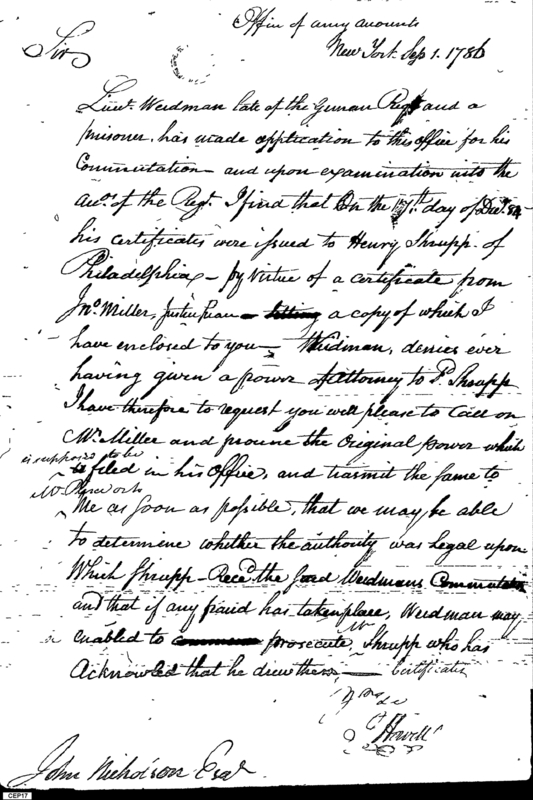 Office of army accounts
New York Sep 1. 1786
Sir
Lieut. Weidman late of the German Regt and a
prisoner, has made application to this office for his
Commutation and upon examination into the
accos. of the Regt. I find that On the day of Decr. 84
his certificates were issued to Henry Shrupp of
Philadelphia, by Virtue of a certificate from
Jno. Miller, Justice Paca a copy of which I
have enclosed to you Weidman, denies ever
having given a power of Attorney to Shrupp
I have therefore to request you will please to Call on
Mr. Miller and procure the Original power which
is supposed to be
filed in his Office, and transmit the same to
Mr. Pierce or to
Me as soon as possible, that we may be able
to determine whether the authority was Legal upon
Which Shrupp Reced. the said Weidmans
and that if any fraud has taken place, Weidman may
enabled to prosecute Mr Shrupp who has
Acknowled that he drew these Certificates
Yours &c
Howell
John Nicholson Esqr.
CEP17